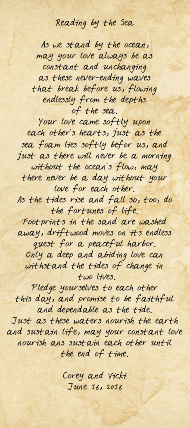 Reading by the Sea
As we stand by the ocean,
may your love always be as
constant and unchanging
as these never-ending waves
that break before us, flowing
endlessly from the depths
of the sea.
Your love came softly upon
each other's hearts, just as the
sea foam lies softly befor us, and
Just as there will never be a morning
without the ocean's flow, may
there never be a day without your
love for each other.
As the tides rise and fall so, too, do
the fortunes of life.
Footprints in the sand are washed
away, driftwood moves on it's endless
quest for a peaceful harbor.
Only a deep and abiding love can
withstand the tides of change in
two lives.
Pledge yourselves to each other
this day, and promise to be faithful
and dependable as the tide.
Just as these waters nourish the earth
and sustain life, may your constant love
nourish ans sustain each other until
the end of time.
Corey and Vicki
June 16, 2016